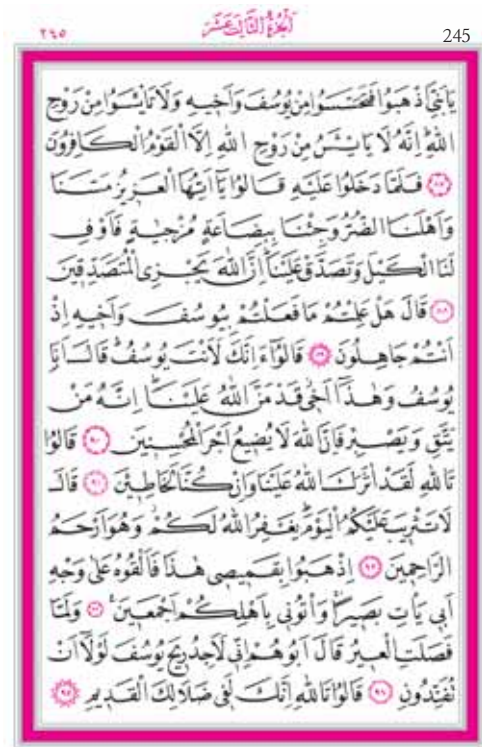 ٢٤٥ اَلْجُزْءُ الثَّالِثَ عَشَرَ 245
يَا بَنِيَّ اذْهَبُوا فَتَحَسَّسُوا مِنْ يُوسُفَ وَاَخِيهِ وَلَا تَايْـَٔسُوا مِنْ رَوْحِ
اللّٰهِ اِنَّهُ لَا يَايْـَٔسُ مِنْ رَوْحِ اللّٰهِ اِلَّا الْقَوْمُ الْكَافِرُونَ
﴿٨٧﴾ فَلَمَّا دَخَلُوا عَلَيْهِ قَالُوا يَٓا اَيُّهَا الْعَزِيزُ مَسَّنَا
وَاَهْلَنَا الضُّرُّ وَجِئْنَا بِبِضَاعَةٍ مُزْجٰيةٍ فَاَوْفِ
لَنَا الْكَيْلَ وَتَصَدَّقْ عَلَيْنَا اِنَّ اللّٰهَ يَجْزِي الْمُتَصَدِّقِينَ
﴿٨٨﴾ قَالَ هَلْ عَلِمْتُمْ مَا فَعَلْتُمْ بِيُوسُفَ وَاَخِيهِ اِذْ
اَنْتُمْ جَاهِلُونَ ﴿٨٩﴾ قَالُٓوا ءَاِنَّكَ لَاَنْتَ يُوسُفُ قَالَ اَنَا
يُوسُفُ وَهٰذَٓا اَخِي قَدْ مَنَّ اللّٰهُ عَلَيْنَا اِنَّهُ مَنْ
يَتَّقِ وَيَصْبِرْ فَاِنَّ اللّٰهَ لَا يُضِيعُ اَجْرَ الْمُحْسِنِينَ ﴿٩٠﴾ قَالُوا
تَاللّٰهِ لَقَدْ اٰثَرَكَ اللّٰهُ عَلَيْنَا وَاِنْ كُنَّا لَخَاطِـِٔينَ ﴿٩١﴾ قَالَ
لَا تَثْرِيبَ عَلَيْكُمُ الْيَوْمَ يَغْفِرُ اللّٰهُ لَكُمْ وَهُوَ اَرْحَمُ
الرَّاحِمِينَ ﴿٩٢﴾ اِذْهَبُوا بِقَمِيصِي هٰذَا فَاَلْقُوهُ عَلٰى وَجْهِ
اَبِي يَاْتِ بَصِيرًا وَاْتُونِي بِاَهْلِكُمْ اَجْمَعِينَ ﴿٩٣﴾ وَلَمَّا
فَصَلَتِ الْعِيرُ قَالَ اَبُوهُمْ اِنِّي لَاَجِدُ رِيحَ يُوسُفَ لَوْلَٓا اَنْ
تُفَنِّدُونِ ﴿٩٤﴾ قَالُوا تَاللّٰهِ اِنَّكَ لَفِي ضَلَالِكَ الْقَدِيمِ ﴿٩٥﴾